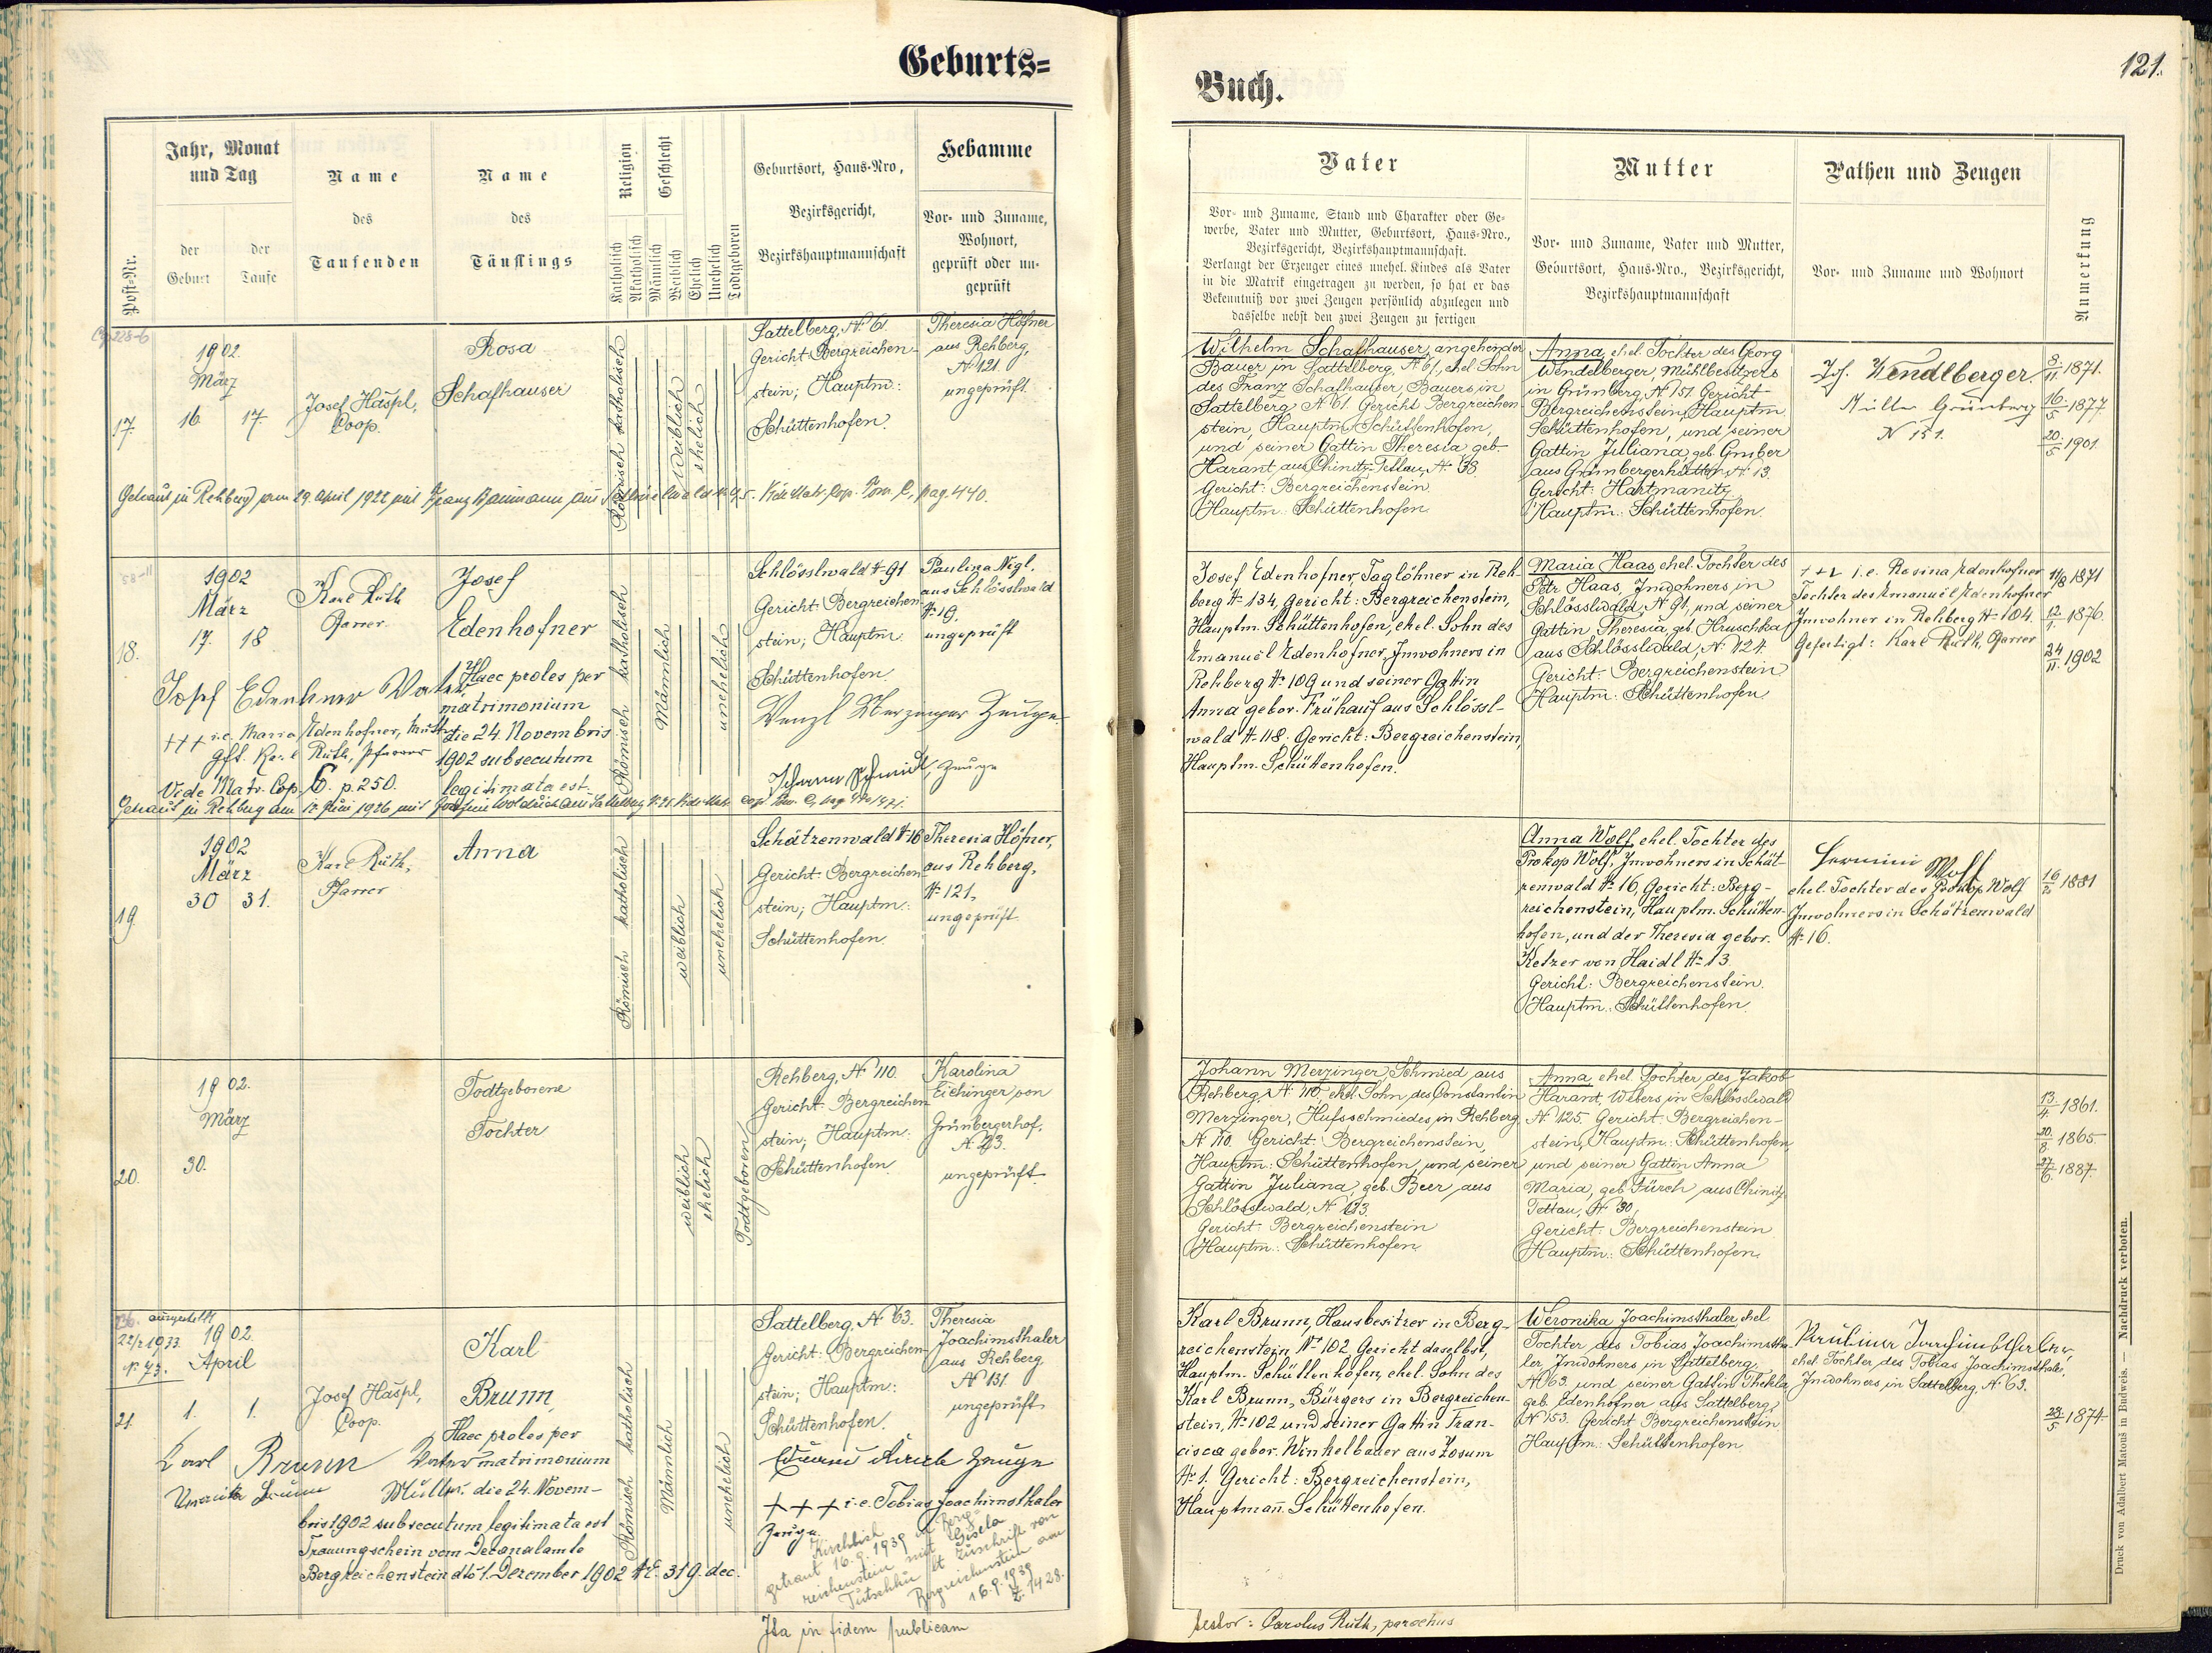 Geburts=
Post-Nr.
Jahr, Monat
und Tag
der
Geburt
der
Taufe
Name
des
Taufenden
Name
des
Täuflings
Religion
Katholisch
Akatholisch
Geschlecht
Männlich
Weiblich
Ehelich
Unehelich
Todtgeboren
Geburtsort, Haus-Nro,
Bezirksgericht,
Bezirkshauptmannschaft
Hebamme
Vor- und Zuname,
Wohnort,
geprüft oder un-
geprüft
17.
1902.
März
16. 17.
Josef Hašpl,
Coop.
Rosa
Schafhauser
Römisch katholisch
Weiblich
ehelich
Sattelberg, № 61.
Gericht: Bergreichen-
stein; Hauptm:
Schüttenhofen.
Theresia Höfner
aus Rehberg,
№ 121.
ungeprüft.
Getraut in Rehberg am 29. April 1922 mit Franz Baumann aus Vide Matr. Cop. Tom. C, pag. 440.
18.
1902
März
17. 18
Karl Rüth
Pfarrer
Josef
Edenhofner
Haec proles per
matrimonium
die 24. Novembris
1902 subsecutum
legitimata est.
Josef Edenhofner Vater
+++ i.e. Maria Edenhofner, Mutter
gft. Karl Rüth, Pfarrer
Vide Matr. Cop. C. p. 250.
Römisch katholisch
Männlich
unehelich
Schlösslwald № 91
Gericht: Bergreichen-
stein; Hauptm.
Schüttenhofen.
Wenzl Merzinger Zeuge
Johann Schmidt, Zeuge
Paulina Nigl,
aus Schlösslwald
№ 19.
ungeprüft
Getraut in Rehberg am 12. Juni 1926 mit
19.
1902
März
30 31.
Karl Rüth,
Pfarrer
Anna
Römisch katholisch
weiblich
unehelich
Schätzenwald № 16
Gericht: Bergreichen-
stein; Hauptm:
Schüttenhofen.
Theresia Höfner,
aus Rehberg,
№ 121,
ungeprüft.
20.
1902.
März
30.
Todtgeborene
Tochter
weiblich
ehelich
Todtgeboren
Rehberg, № 110.
Gericht: Bergreichen-
stein; Hauptm:
Schüttenhofen.
Karolina
Eichinger von
Grünbergerhof,
№ 23.
ungeprüft
ausgestellt
22/2 1933
№ 73.
21.
1902.
April
1. 1.
Josef Hašpl,
Coop.
Karl
Brunn,
Haec proles per
matrimonium
die 24. Novem-
bris 1902 subsecutum legitimata est
Trauungschein vom Decanalamte
Bergreichenstein dto 1. Dezember 1902 № E. 319. dec.
Karl Brunn Vater
Mutter.
Römisch katholisch
Männlich
unehelich
Sattelberg, № 63.
Gericht: Bergreichen-
stein; Hauptm:
Schüttenhofen.
Zeuge
+++ i.e. Tobias Joachimsthaler
Zeuge
Theresia
Joachimsthaler
aus Rehberg
№ 131
ungeprüft
Kirchlich
getraut 16.9.1939 in Berg-
reichenstein mit Gisela
lt Zuschrift von
Bergreichenstein am
16.9.1939
Z. 1428.
Ita in fidem publicam
Buch.
121.
Vater
Vor- und Zuname, Stand und Charakter oder Ge-
werbe, Vater und Mutter, Geburtsort, Haus-Nro.,
Bezirksgericht, Bezirkshauptmannschaft.
Verlangt der Erzeuger eines unehel. Kindes als Vater
in die Matrik eingetragen zu werden, so hat er das
Bekenntniß vor zwei Zeugen persönlich abzulegen und
dasselbe nebst den zwei Zeugen zu fertigen
Mutter
Vor- und Zuname, Vater und Mutter,
Geburtsort, Haus-Nro., Bezirksgericht,
Bezirkshauptmannschaft
Pathen und Zeugen
Vor- und Zuname und Wohnort
Anmerkung
Wilhelm Schafhauser, angehender
Bauer in Sattelberg, № 61, ehel. Sohn
des Franz Schafhauser, Bauers in
Sattelberg № 61. Gericht Bergreichen-
stein, Hauptm. Schüttenhofen,
und seiner Gattin Theresia geb.
Harant, aus Chinitz-Tettau, № 38.
Gericht: Bergreichenstein
Hauptm: Schüttenhofen.
Anna, ehel. Tochter des Georg
Wendelberger, Mühlbesitzers
in Grünberg, № 151. Gericht
Bergreichenstein, Hauptm.
Schüttenhofen, und seiner
Gattin Juliana, geb. Gruber
aus Grünbergerhütten, № 13.
Gericht: Hartmanitz
Hauptm: Schüttenhofen.
Jos. Wendlberger.
Müller Grünberg
N 151.
8./11. 1871.
16./5. 1877
20./5. 1901
Josef Edenhofner, Taglöhner in Reh-
berg № 134, Gericht: Bergreichenstein,
Hauptm. Schüttenhofen, ehel. Sohn des
Emanuel Edenhofner, Inwohners in
Rehberg № 109 und seiner Gattin
Anna gebor. Frühauf aus Schlössl-
wald № 118. Gericht: Bergreichenstein,
Hauptm. Schüttenhofen.
Maria Haas, ehel. Tochter des
Petr Haas, Inwohners in
Schlösslwald, № 91, und seiner
Gattin Theresia, geb. Hruschka
aus Schlösslwald, № 124.
Gericht: Bergreichenstein
Hauptm: Schüttenhofen
+++ i.e. Rosina Edenhofner
Tochter des Emanuel Edenhofner
Inwohner in Rehberg № 104.
Gefertigt: Karl Rüth, Pfarrer
11/8 1871
12./1. 1876.
24./11. 1902
Anna Wolf, ehel. Tochter des
Prokop Wolf, Inwohners in Schät-
zenwald № 16, Gericht: Berg-
reichenstein, Hauptm. Schütten-
hofen, und der Theresia gebor.
Ketzer von Haidl № 13.
Gericht: Bergreichenstein.
Hauptm: Schüttenhofen.
Hermine Wolf
ehel. Tochter des Prokop Wolf
Inwohners in Schätzenwald
№ 16.
16/2 1881
Johann Merzinger, Schmied aus
Rehberg, № 110, ehel. Sohn des Constantin
Merzinger, Hufschmiedes in Rehberg
№ 110. Gericht: Bergreichenstein,
Hauptm: Schüttenhofen, und seiner
Gattin Juliana, geb. Beer aus
Schlösslwald, № 123.
Gericht: Bergreichenstein
Hauptm: Schüttenhofen.
Anna, ehel. Tochter des Jakob
Harant, Webers in Schlösslwald
№ 125. Gericht: Bergreichen-
stein, Hauptm: Schüttenhofen,
und seiner Gattin Anna
Maria, geb. Fürch aus Chinitz
Tettau, № 30.
Gericht: Bergreichenstein
Hauptm: Schüttenhofen.
13./4. 1861.
20./8 1865
27./6. 1887.
Karl Brunn, Hausbesitzer in Berg-
reichenstein, № 102 Gericht daselbst,
Hauptm. Schüttenhofen, ehel. Sohn des
Karl Brunn, Bürgers in Bergreichen-
stein, № 102 und seiner Gattin Fran-
cisca gebor. Winkelbauer aus Zosum
№ 1. Gericht: Bergreichenstein,
Hauptmañ. Schüttenhofen.
Weronika Joachimsthaler, ehel
Tochter des Tobias Joachimstha-
ler, Inwohners in Sattelberg
№ 63. und seiner Gattin Thekla
geb. Edenhofner aus Sattelberg,
№ 53. Gericht Bergreichenstein
Hauptm: Schüttenhofen
Paulina Joachimsthaler,
ehel. Tochter des Tobias Joachimsthaler,
Inwohners, in Sattelberg, № 63.
28./5. 1874
testor: Carolus Rüth, parochus
Druck von Adalbert Matouš in Budweis. — Nachdruck verboten.